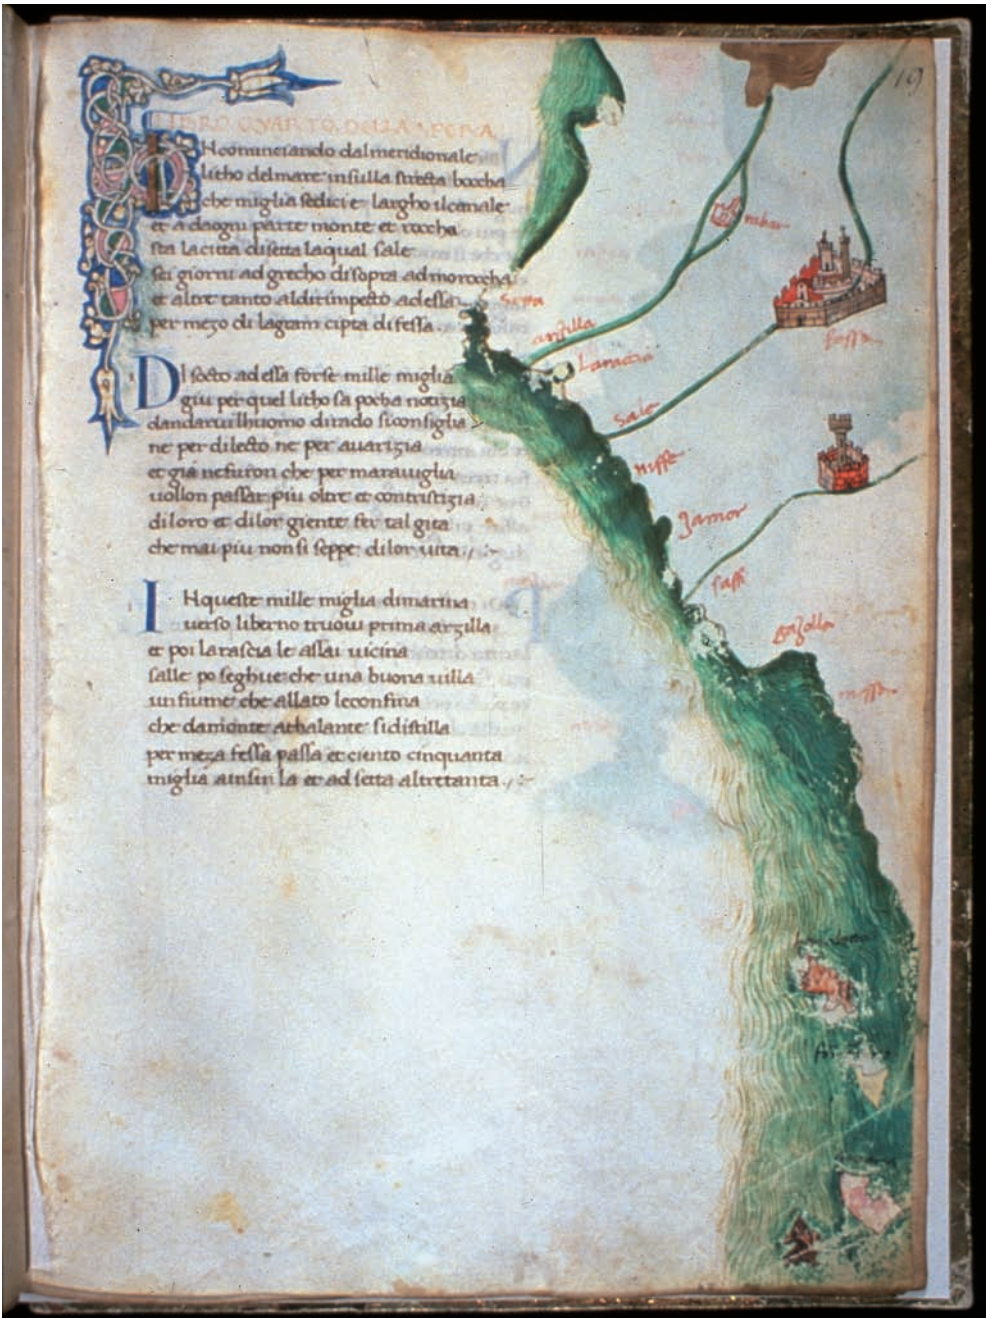 19
LIBRO QVARTO DELLA SPERA
INcominciando dal meridionale
litho del mare insulla strecta boccha
che miglia sedici e largho il canale
et a daogni parte monte et roccha
sta la citta disetta laqual sale
sei giorni ad grecho disopra ad moroccha
et altre tanto aldirimpecto adessa
per mezo di lagram cipta di fessa.
DI socto ad essa forse mille miglia
giu per quel litho sa pocha notizia
dandarui lhuomo dirado siconsiglia
ne per dilecto ne per auarizia
et gia ne furon che per marauiglia
uollon passar piu oltre et contristizia
di loro et di lor giente fer tal gita
che mai piu non si seppe di lor uita
IN queste mille miglia dimarina
uerso liberno truoui prima arzilla
et poi larascia le assai uicina
salle po seghue che una buona uilla
un fiume che allato leconfina
che damonte athalante si distilla
per meza fessa passa et ciento cinquanta
miglia ainsin la et ad setta altretanta
Setta
arzilla
Laraccia
fessa
Sale
niffe
Zamor
saffi
gozolla
messa